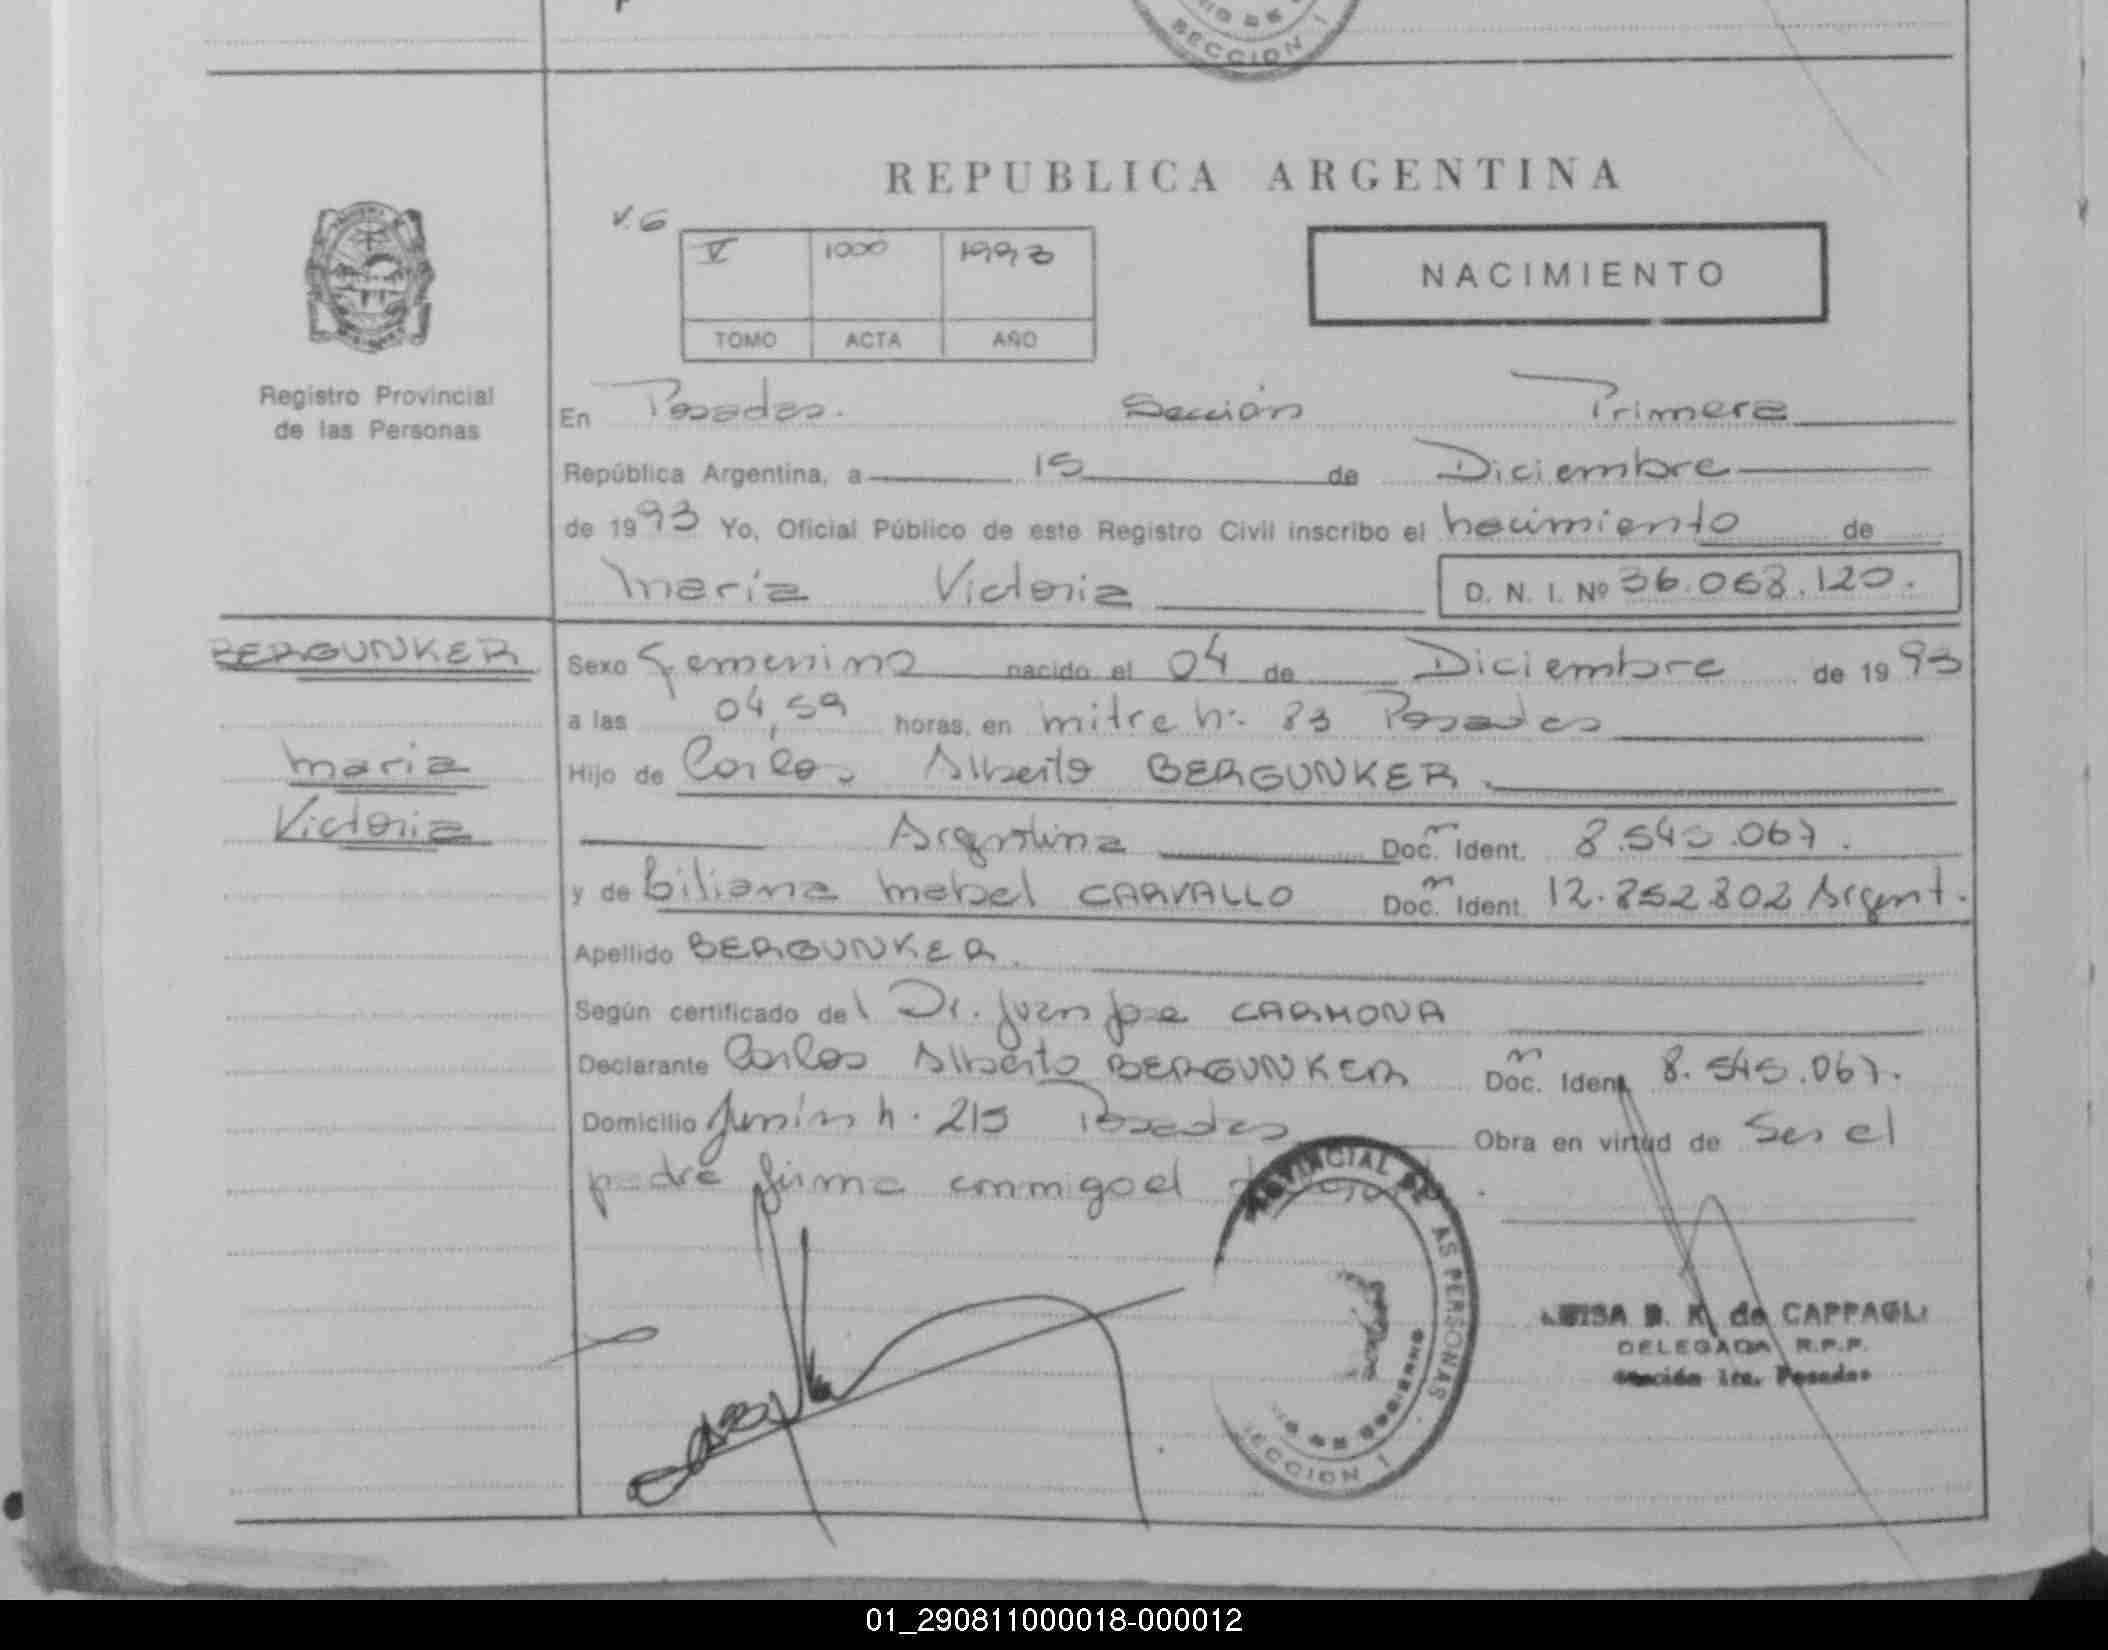 SECCION 1
REPUBLICA ARGENTINA
V. 6
V 1000 1993
TOMO ACTA AÑO
NACIMIENTO
Registro Provincial
de las Personas
En Posadas. Sección Primera
República Argentina, a 15 de Diciembre
de 1993 Yo, Oficial Público de este Registro Civil inscribo el nacimiento de
María Victoria D. N. I. Nº 36.068.120.
BERGUNKER
Maria
Victoria
Sexo Femenino nacido el 04 de Diciembre de 1993
a las 04,59 horas, en mitre n: 83 Posadas
Hijo de Carlos Alberto BERGUNKER.
Argentina Doc. Ident. 8.545.067.
y de Biliana Mabel CARVALLO Doc. Ident. 12.852.802 Argent.
Apellido BERGUNKER.
Según certificado del Dr. Juan Jose CARMONA
Declarante Carlos Alberto BERGUNKER Doc. Ident. 8.545.067.
Domicilio Junín n. 215 Posadas Obra en virtud de Ser el
padre firma conmigo el
PROVINCIAL DE LAS PERSONAS
SECCION 1
LUISA B. K. de CAPPAGLI
DELEGADA R.P.P.
Sección 1ra. Posadas
01_290811000018-000012